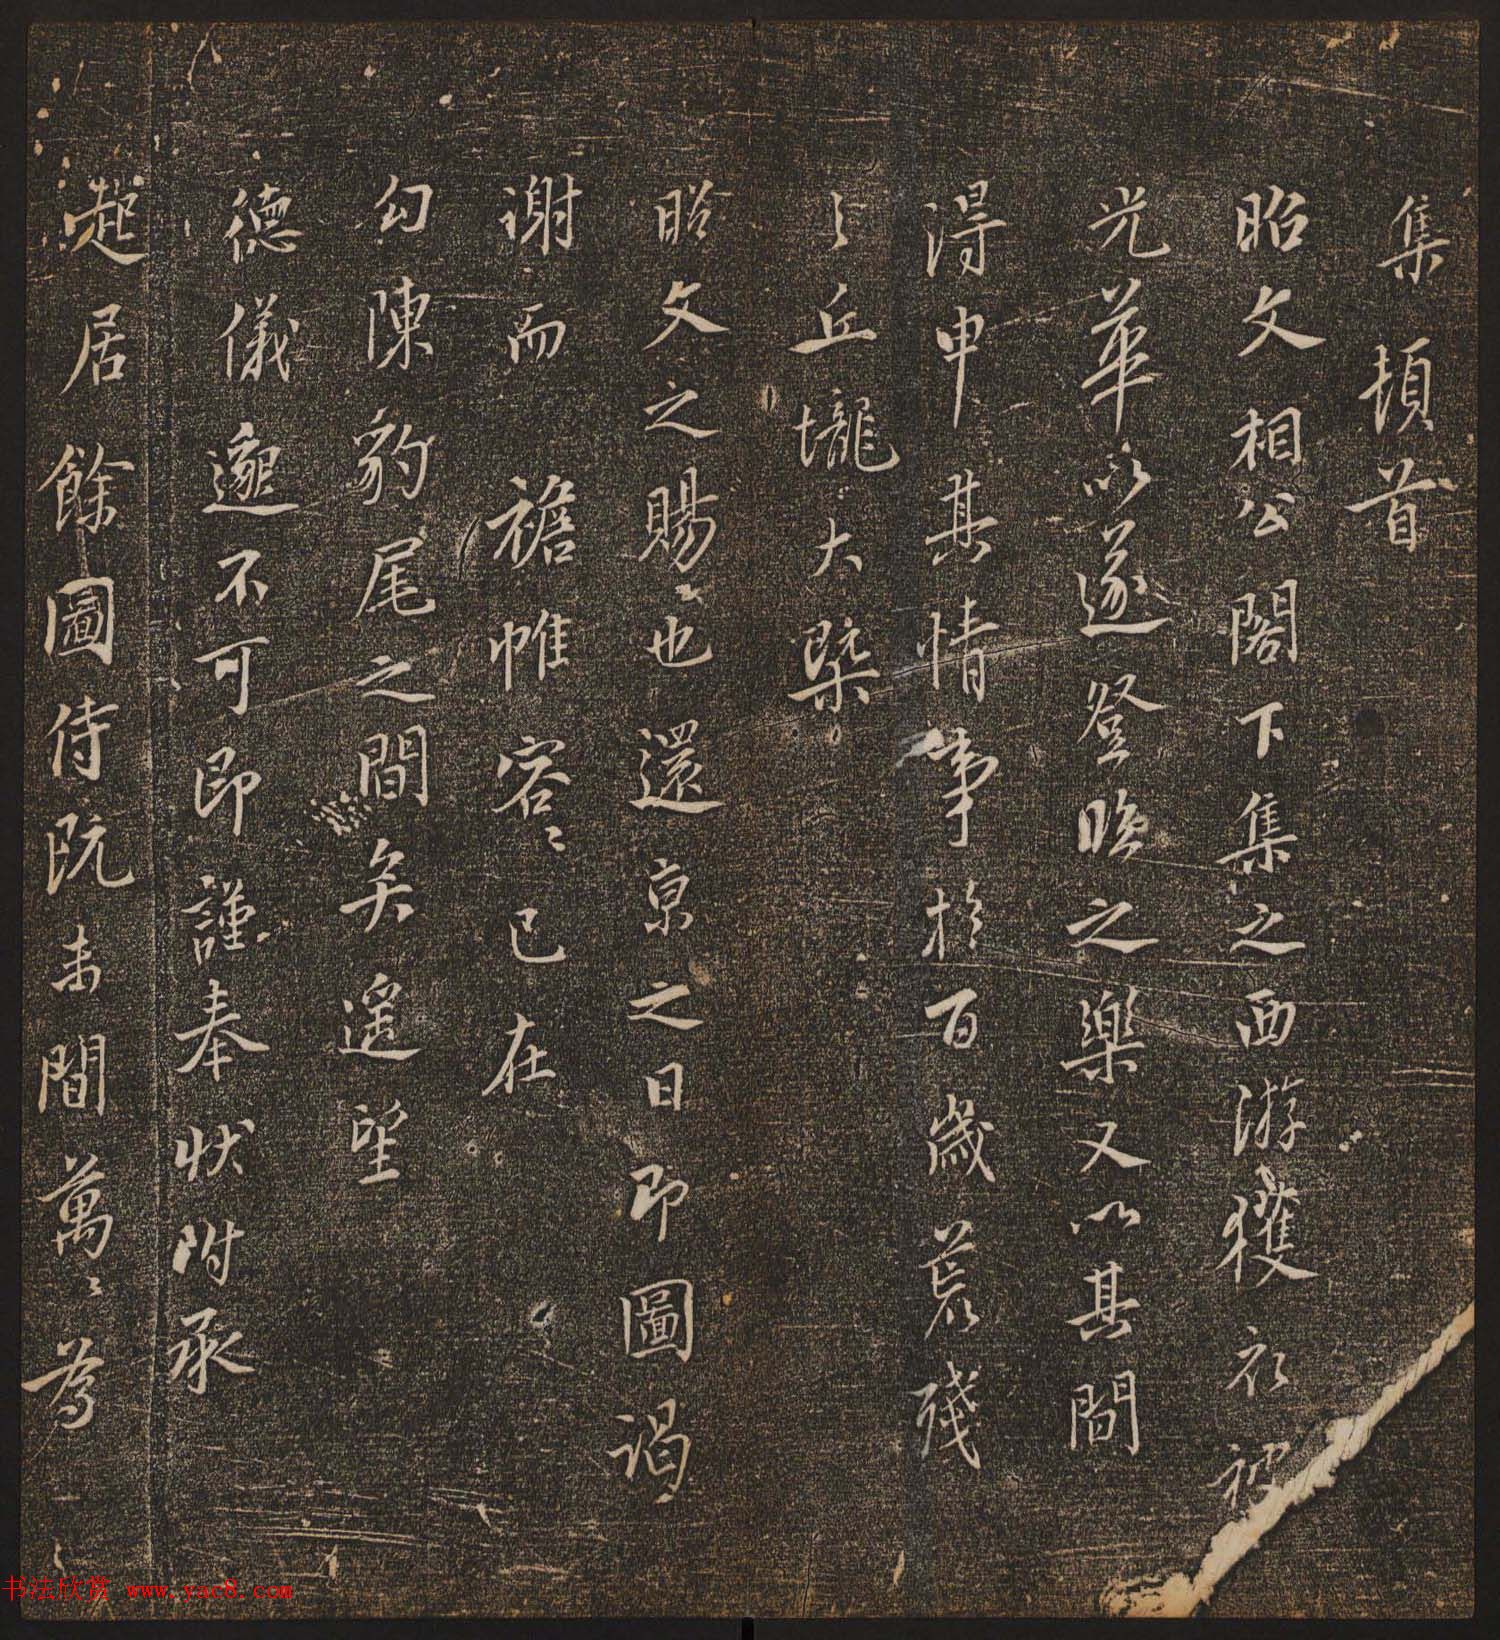 集頓首
昭文相公閣下集之西游獲衣被
光華以遂登臨之樂又以其間
得申其情事於百歲荒殘
之丘壠大槩
昭文之賜也還京之日即圖謁
謝而襜帷容容已在
幻陳豹尾之間矣遥望
德儀邈不可即謹奉狀附承
起居餘圖侍既未間萬萬為
书法欣赏 www.yac8.com